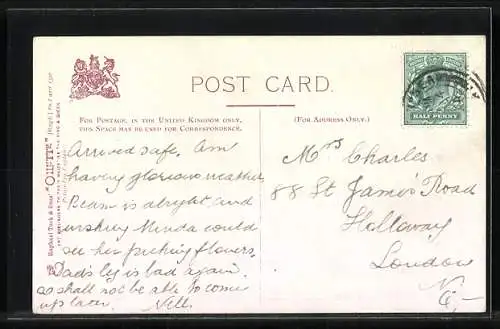 POST CARD.
FOR POSTAGE, IN THE UNITED KINGDOM ONLY,
THIS SPACE MAY BE USED FOR CORRESPONDENCE.
(FOR ADDRESS ONLY.)
HALF PENNY
Raphael Tuck & Sons' "OILETTE" [Regd.]
Arrived safe. Am
having glorious weather
is alright and
wishing could
see her picking flowers.
Dads leg is bad again.
so shall not be able to come
up later. Nell.
Mrs Charles
88 St James Road
Holloway
London
N.